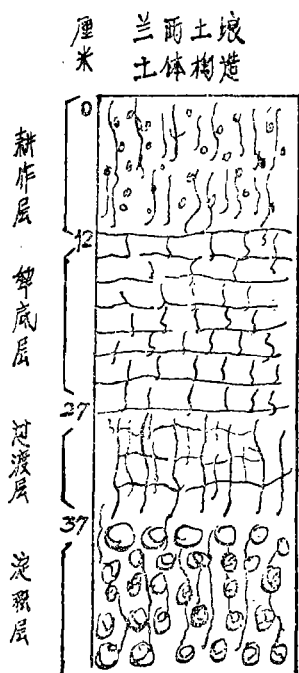 厘米
兰西土壤
土体构造
0
耕作层
12
犁底层
27
过渡层
37
淀积层